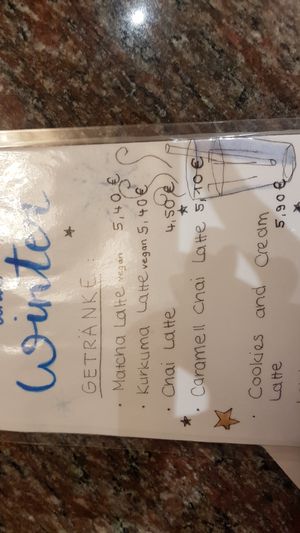 Winter
GETRÄNKE:
• Matcha Latte vegan 5,40€
• Kurkuma Latte vegan 5,40€
• Chai Latte 4,50€
• Caramell Chai Latte 5,10€
• Cookies and Cream
Latte 5,90€